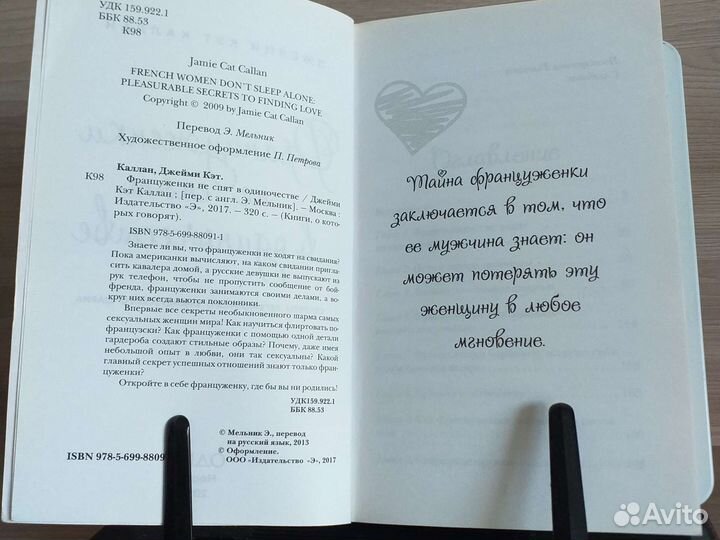 УДК 159.922.1
ББК 88.53
К98
Jamie Cat Callan
FRENCH WOMEN DON'T SLEEP ALONE:
PLEASURABLE SECRETS TO FINDING LOVE
Copyright © 2009 by Jamie Cat Callan
Перевод Э. Мельник
Художественное оформление П. Петрова
Каллан, Джейми Кэт.
К98 Француженки не спят в одиночестве / Джейми
Кэт Каллан ; [пер. с англ. Э. Мельник]. – Москва :
Издательство «Э», 2017. – 320 с. – (Книги, о кото-
рых говорят).
ISBN 978-5-699-88091-1
Знаете ли вы, что француженки не ходят на свидания?
Пока американки вычисляют, на каком свидании пригла-
сить кавалера домой, а русские девушки не выпускают из
рук телефон, чтобы не пропустить сообщение от бой-
френда, француженки занимаются своими делами, а во-
круг них всегда вьются поклонники.
Впервые все секреты необыкновенного шарма самых
сексуальных женщин мира! Как научиться флиртовать по-
французски? Как француженки с помощью одной детали
гардероба создают стильные образы? Почему, даже имея
небольшой опыт в любви, они так сексуальны? Какой
главный секрет успешных отношений знают только фран-
цуженки?
Откройте в себе француженку, где бы вы ни родились!
УДК159.922.1
ББК 88.53
© Мельник Э., перевод
на русский язык, 2013
© Оформление.
ООО «Издательство «Э», 2017
ISBN 978-5-699-8809
Тайна француженки
заключается в том, что
ее мужчина знает: он
может потерять эту
женщину в любое
мгновение.
Avito